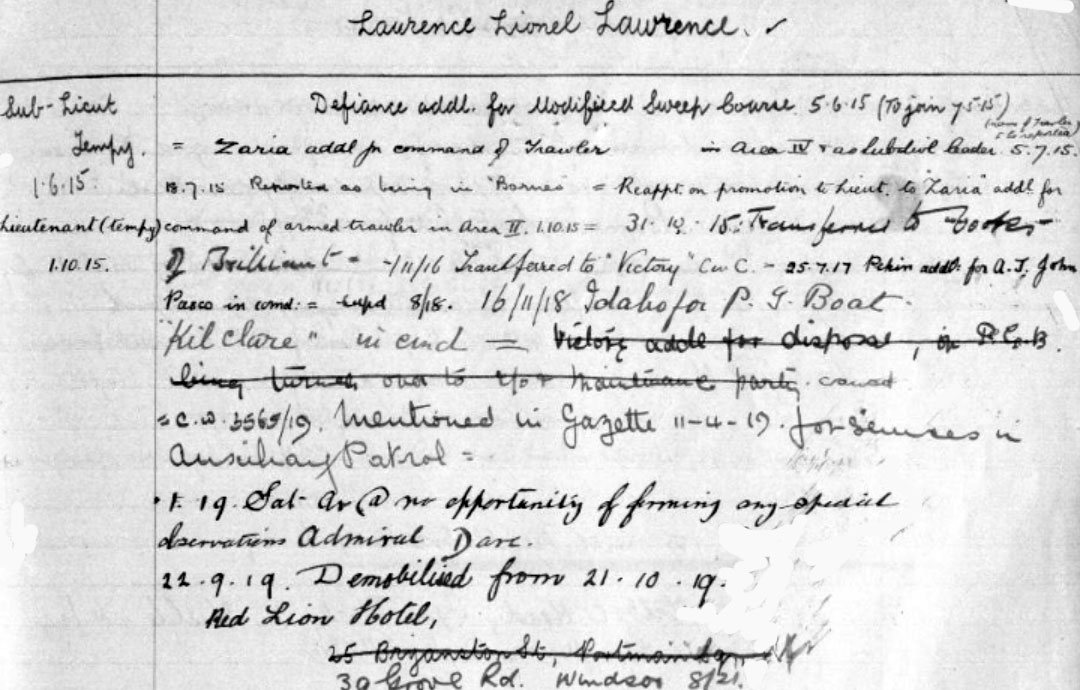 Laurence Lionel Lawrence.
Sub-Lieut Defiance addl. for Modified Sweep Course. 5.6.15 (To join 7.5.15)
Tempy. = Zaria addl for command of Trawler in Area IV & as Subdivl leader 5.7.15.
1.6.15 18.7.15 Reported as being in "Barnes" = Reappt. on promotion to Lieut. to "Zaria" addl. for
Lieutenant (tempy) command of armed trawler in Area II. 1.10.15 = 31.12.15. Transferred to Books
1.10.15. of Brilliant = -/11/16 Transferred to "Victory" C in C. - 25.7.17 Pekin addl. for A.T. John
Pasco in comd. = 8/18. 16/11/18 Idaho for P. G. Boat
"Kil Clare" in cmd = Victory addl for disposal, on P.G.B.
being turned over to maintenance party. cancd
= C.W. 3565/19. Mentioned in Gazette 11-4-19. for Services in
Auxiliary Patrol =
1.19. Sat- no opportunity of forming any special
observations Admiral Dare.
22.9.19. Demobilised from 21.10.19.
Red Lion Hotel,
25 Bryanston St., Portman Sq.
39 Grove Rd. Windsor 8/21.